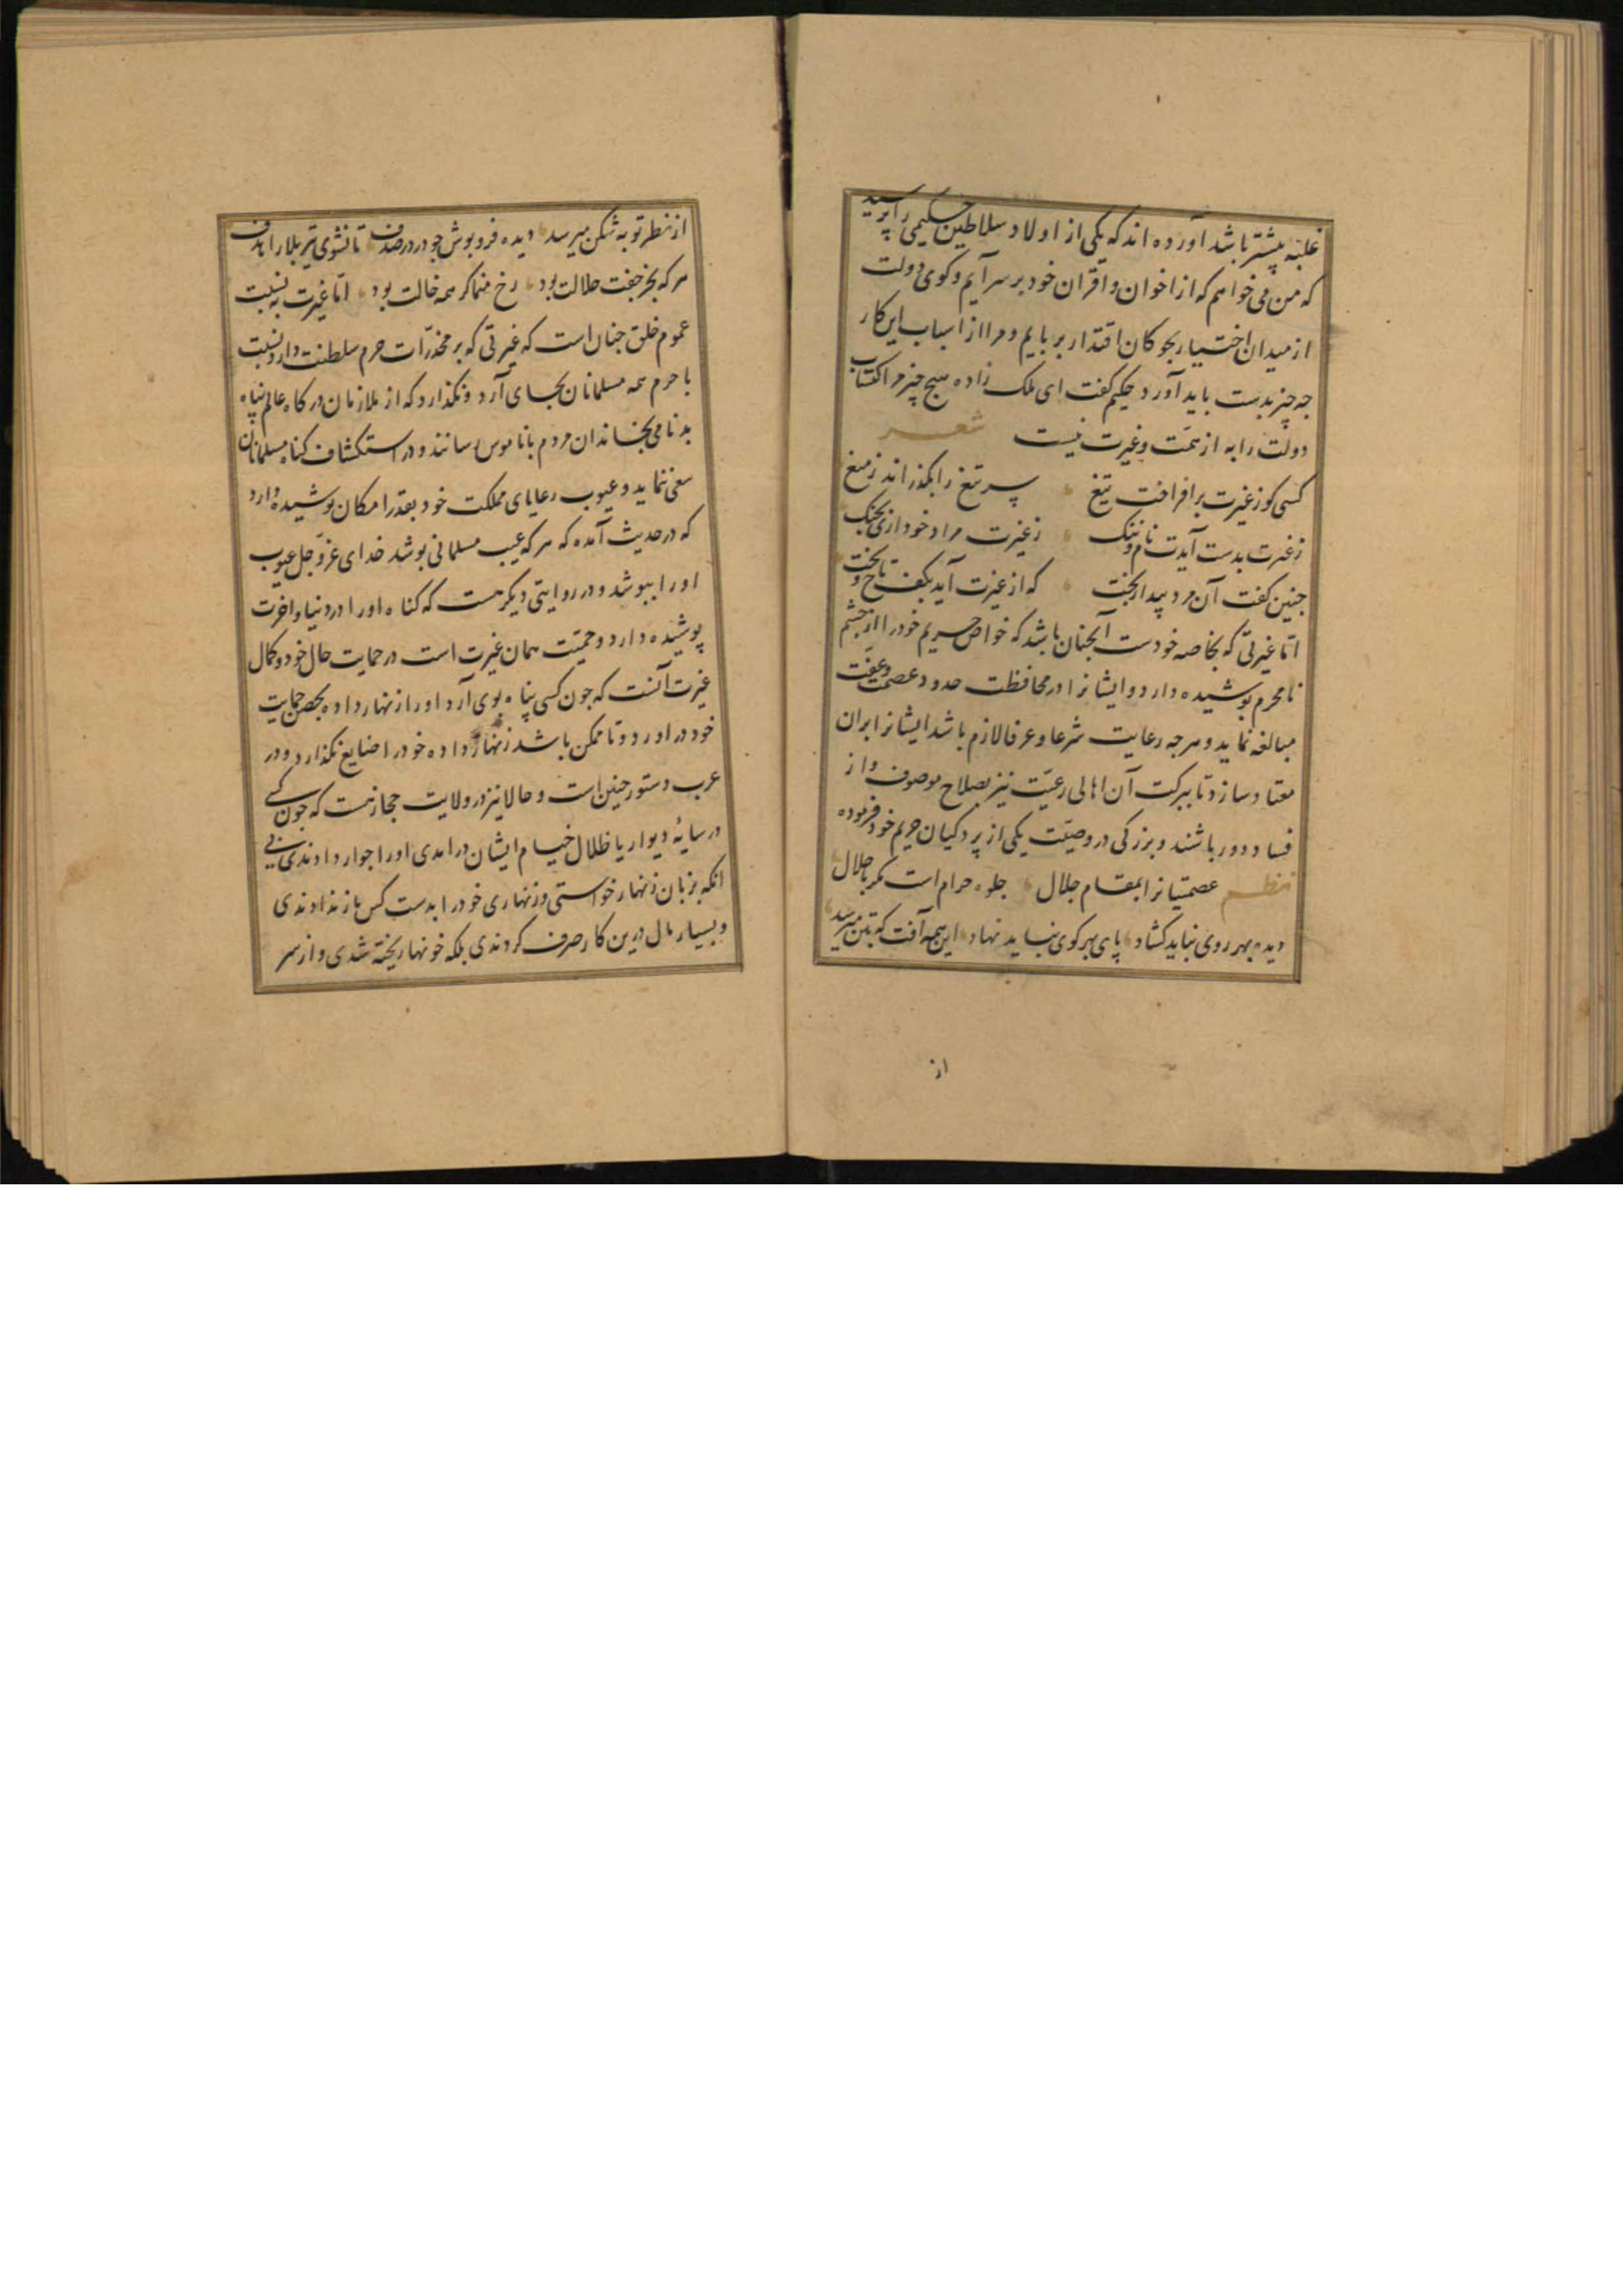 غلبه بیشتر باشد آورده اند که یکی از اولاد سلاطین حکیمی را پرسید
که من می خواهم که از اخوان و اقران خود بر سر آیم و کوی دولت
از میدان اختیار بچوکان اقتدار بربایم و مرا از اسباب این کار
جه چیز بدست باید آورد حکیم کفت ای ملک زاده هیچ چیز مر اکتساب
دولت را به از همّت و غیرت نیست شعر
کسی کو ز غیرت برافراخت تیغ سر تیغ را بگذراند ز میغ
ز غیرت بدست آیدت نام و ننک ز غیرت مراد خود آری بچنک
جنین کفت آن مرد بیدار بخت که از غیرت آید بکف تاج و تخت
امّا غیرتی که بخاصه خودست آنجنان باشد که خواص حریم خود را از جشم
نامحرم پوشیده دارد و ایشانرا در محافظت حدود عصمت و عفّت
مبالغه نماید و هرجه رعایت شرعا و عرفا لازم باشد ایشانرا بران
معتاد سازد تا ببرکت آن اهالی رعیّت نیز بصلاح موصوف و از
فساد دور باشند و بزرکی در وصیّت یکی از پردکیان حریم خود فرموده
نظم عصمتیانرا بمقام جلال جلوه حرام است مکر با حلال
دیده بهر روی نباید کشاد پای بهر کوی نباید نهاد این همه آفت که بتن میرسد
از
از نظر توبه شکن میرسد دیده فرو پوش جو در در صدف تا نشوی تیر بلا را هدف
هر که بجز جفت حلالت بود رخ منما کر همه خالت بود امّا غیرت به نسبت
عموم خلق جنان است که غیرتی که بر مخدّرات حرم سلطنت دارد نسبت
با حرم همه مسلمانان بجای آرد و نکذارد که از ملازمان درکاه عالم پناه
بدنامی بخاندان مردم با ناموس رسانند و در استکشاف کناه مسلمانان
سعی ننماید و عیوب رعایای مملکت خود بقدر امکان پوشیده دارد
که در حدیث آمده که هر که عیب مسلمانی پوشد خدای عزّ و جل عیوب
او را بپوشد و در روایتی دیکر هست که کناه او را در دنیا و اخرت
پوشیده دارد و حمیّت همان غیرت است در حمایت حال خود و کمال
غیرت آنست که جون کسی پناه بوی آرد او را زنهار داده بحصن حمایت
خود در اورد و تا ممکن باشد زنهار داده خود را ضایع نکذارد و در
عرب دستور جنین است و حالا نیز در ولایت حجاز هست که جون کسی
در سایهٔ دیوار یا ظلال خیام ایشان درامدی او را جوار دادندی بی
انکه بزبان زنهار خواستی و زنهاری خود را بدست کس باز ندادندی
و بسیار مال درین کار صرف کردندی بلکه خونها ریخته شدی و از سر